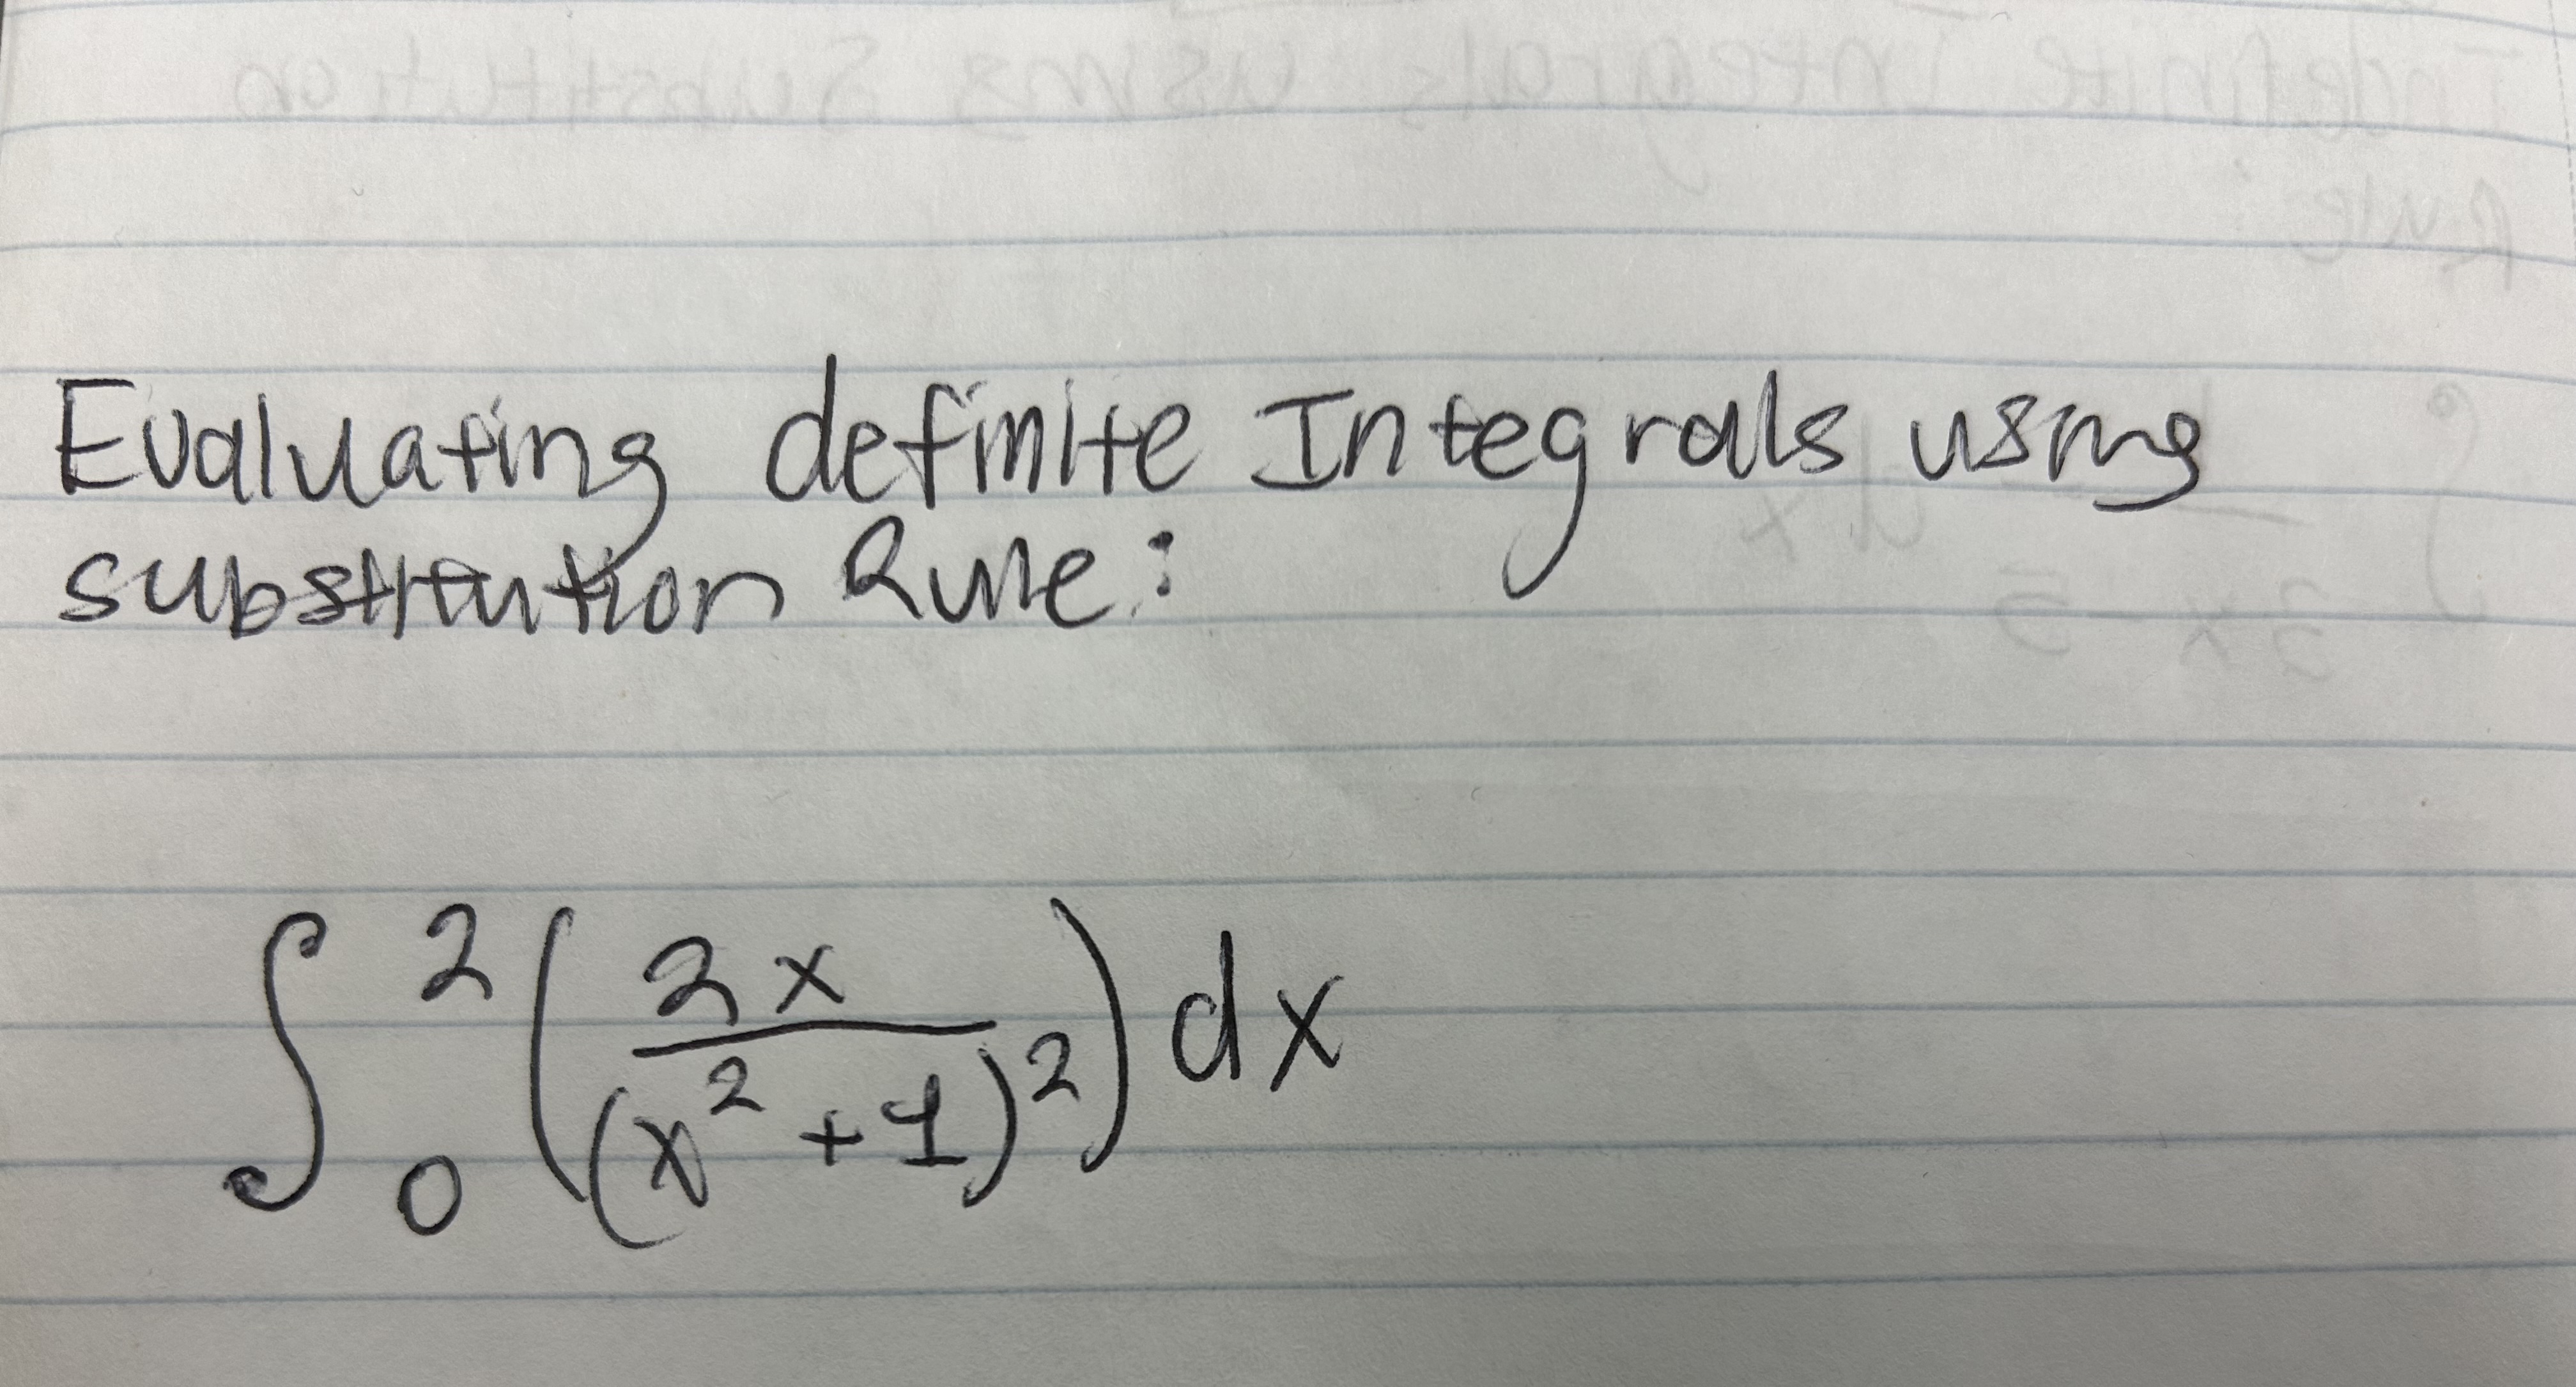 Evaluating definite Integrals using
substitution Rule:
∫₀² (2x / (x² + 1)²) dx